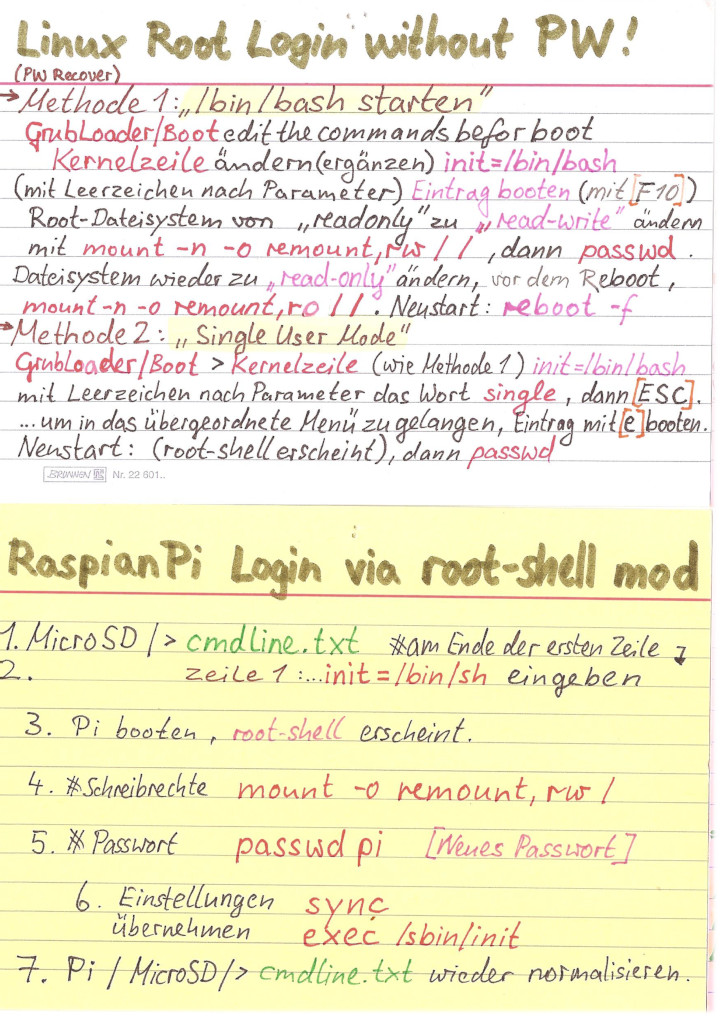 Linux Root Login without PW!
(PW Recover)
→ Methode 1: „/bin/bash starten"
GrubLoader/Boot edit the commands befor boot
Kernelzeile ändern (ergänzen) init=/bin/bash
(mit Leerzeichen nach Parameter) Eintrag booten (mit [F10])
Root-Dateisystem von „readonly" zu „read-write" ändern
mit mount -n -o remount,rw / / , dann passwd .
Dateisystem wieder zu „read-only" ändern, vor dem Reboot,
mount -n -o remount,ro / / . Neustart: reboot -f
→ Methode 2: „Single User Mode"
GrubLoader/Boot > Kernelzeile (wie Methode 1) init=/bin/bash
mit Leerzeichen nach Parameter das Wort single, dann [ESC].
...um in das übergeordnete Menü zu gelangen, Eintrag mit [e] booten.
Neustart: (root-shell erscheint), dann passwd
BRUNNEN Nr. 22 601..
RaspianPi Login via root-shell mod
1. MicroSD /> cmdline.txt #am Ende der ersten Zeile ↴
2. zeile 1:...init=/bin/sh eingeben
3. Pi booten, root-shell erscheint.
4. #Schreibrechte mount -o remount, rw /
5. # Passwort passwd pi [Neues Passwort]
6. Einstellungen sync
übernehmen exec /sbin/init
7. Pi / MicroSD /> cmdline.txt wieder normalisieren.